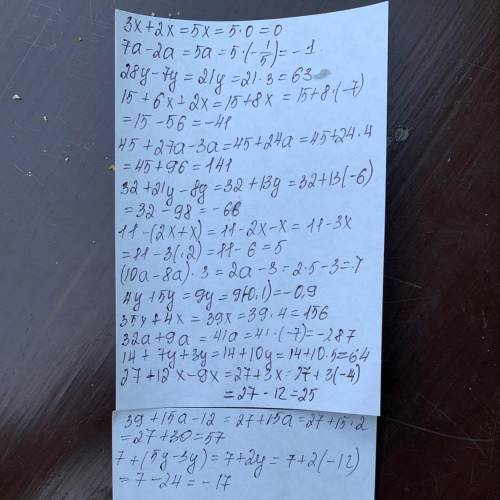 3x+2x=5x=5·0=0
7a-2a=5a=5·(-1/5)=-1
28y-7y=21y=21·3=63
15+6x+2x=15+8x=15+8·(-7)
=15-56=-41
45+27a-3a=45+24a=45+24·4
=45+96=141
32+21y-8y=32+13y=32+13(-6)
=32-98=-66
11-(2x+x)=11-2x-x=11-3x
=11-3(·2)=11-6=5
(10a-8a)·3=2a-3=2·5-3=7
4y+5y=9y=9(-0,1)=-0,9
35x+4x=39x=39·4=156
32a+9a=41a=41·(-7)=-287
14+7y+3y=14+10y=14+10·5=64
27+12x-9x=27+3x=27+3(-4)
=27-12=25
39+15a-12=27+15a=27+15·2
=27+30=57
7+(5y-3y)=7+2y=7+2(-12)
=7-24=-17